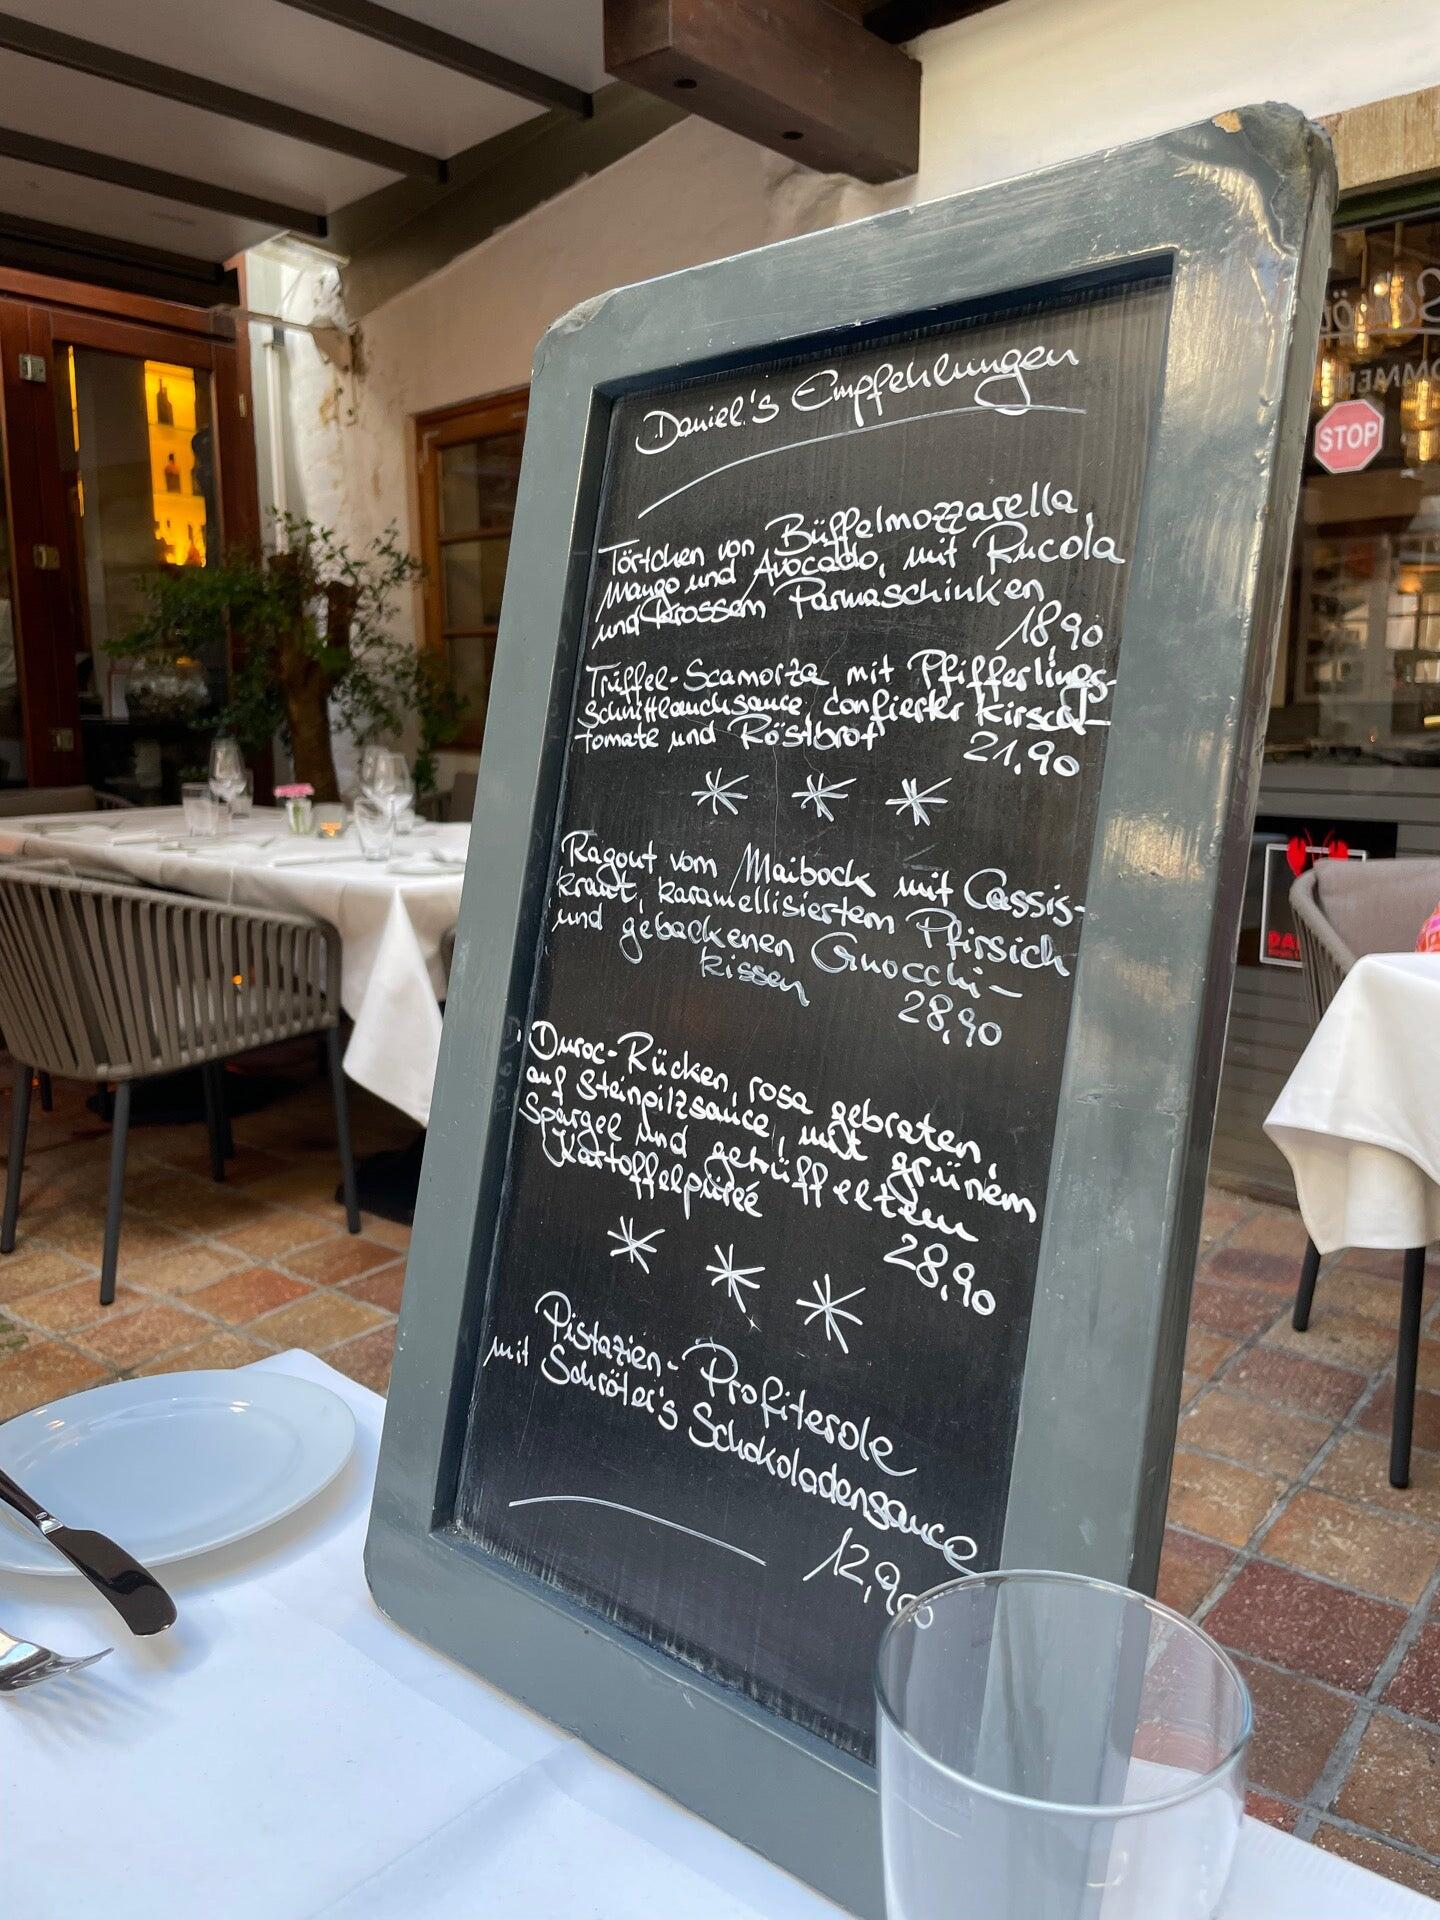 Daniel's Empfehlungen
Törtchen von Büffelmozzarella,
Mango und Avocado, mit Rucola
und krossem Parmaschinken
18,90
Trüffel-Scamorza mit Pfifferlings-
Schnittlauchsauce, confierter Kirsch-
tomate und Röstbrot
21,90
Ragout vom Maibock mit Cassis-
kraut, karamellisiertem Pfirsich
und gebackenen Gnocchi-
kissen
28,90
Duroc-Rücken rosa gebraten,
auf Steinpilzsauce, mit grünem
Spargel und getrüffeltem
Kartoffelpüree
28,90
Pistazien-Profiterole
mit Schröter's Schokoladensauce
12,90
STOP